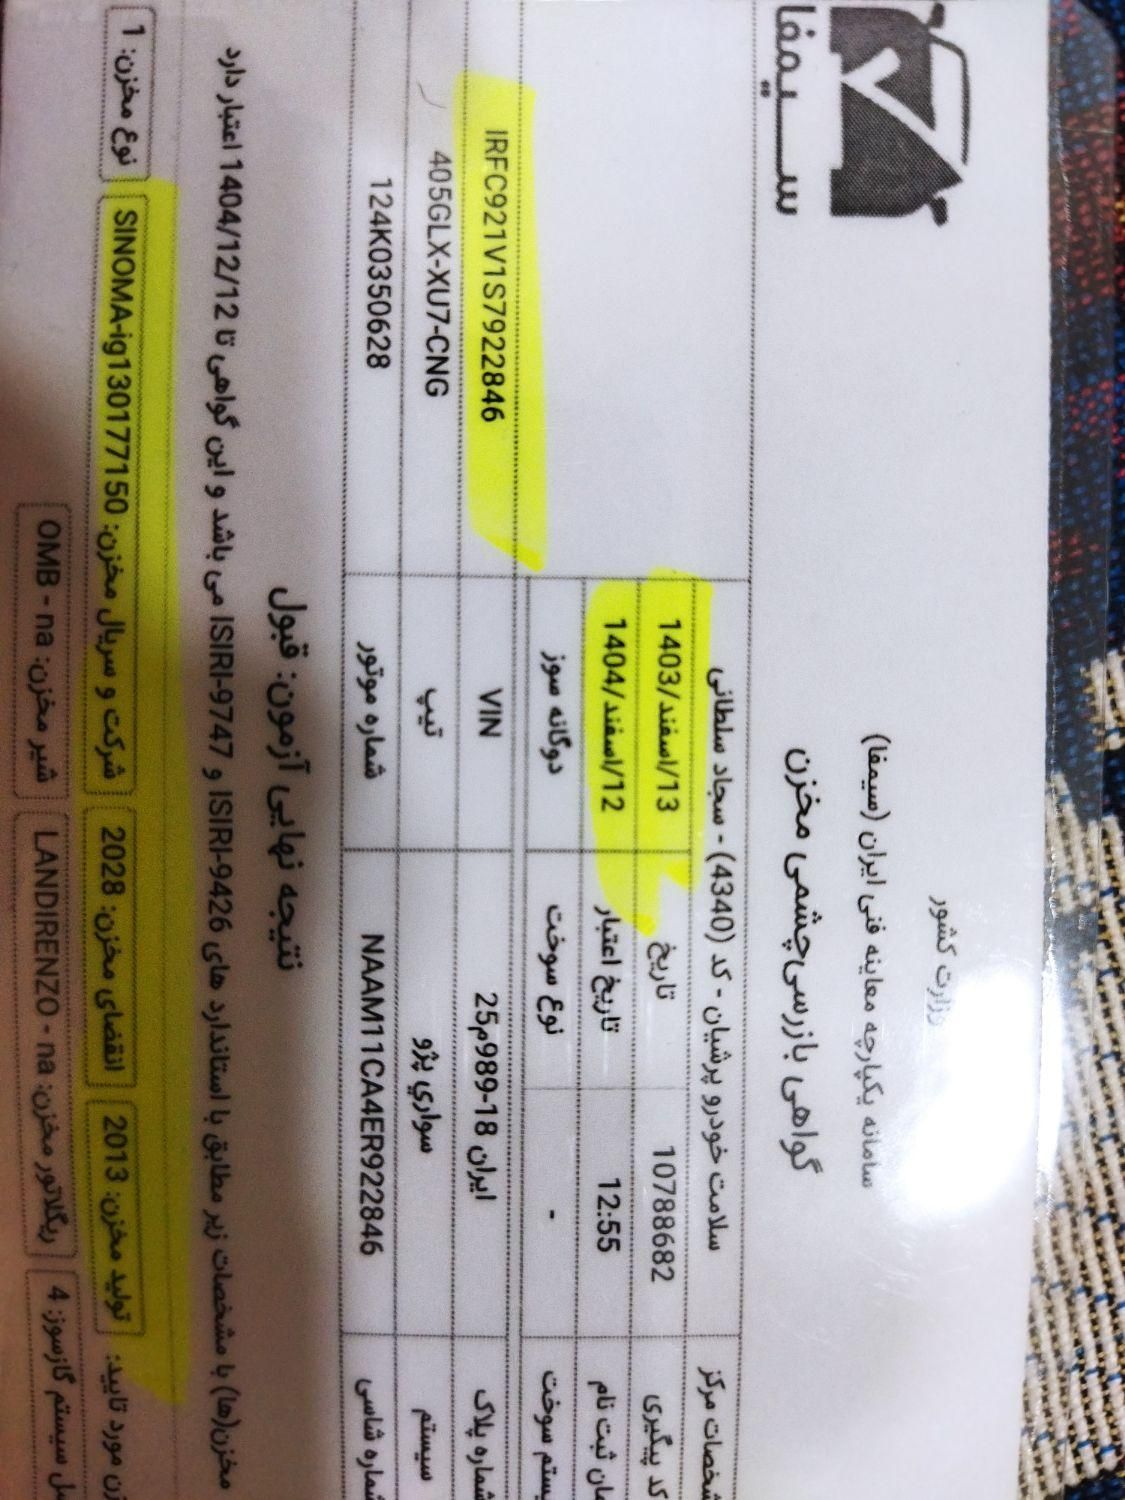 سیمفا
وزارت کشور
سامانه یکپارچه معاینه فنی ایران (سیمفا)
گواهی بازرسی‌چشمی مخزن
مشخصات مرکز سلامت خودرو پرشیان - کد (4340) - سجاد سلطانی
کد پیگیری 10788682 تاریخ 13/اسفند/1403
زمان ثبت نام 12:55 تاریخ اعتبار 12/اسفند/1404
سیستم سوخت - نوع سوخت دوگانه سوز
شماره پلاک ایران 18-989م25 VIN IRFC921V1S7922846
سیستم سواري پژو تیپ 405GLX-XU7-CNG
شماره شاسی NAAM11CA4ER922846 شماره موتور 124K0350628
نتیجه نهایی آزمون: قبول
مخزن(ها) با مشخصات زیر مطابق با استاندارد های ISIRI-9426 و ISIRI-9747 می باشد و این گواهی تا 1404/12/12 اعتبار دارد
مورد تایید: تولید مخزن: 2013 انقضای مخزن: 2028 شرکت و سریال مخزن: SINOMA-ig13017715 0 نوع مخزن: 1
سیستم گازسوز: 4 ریگلاتور مخزن: LANDIRENZO - na شیر مخزن: OMB - na